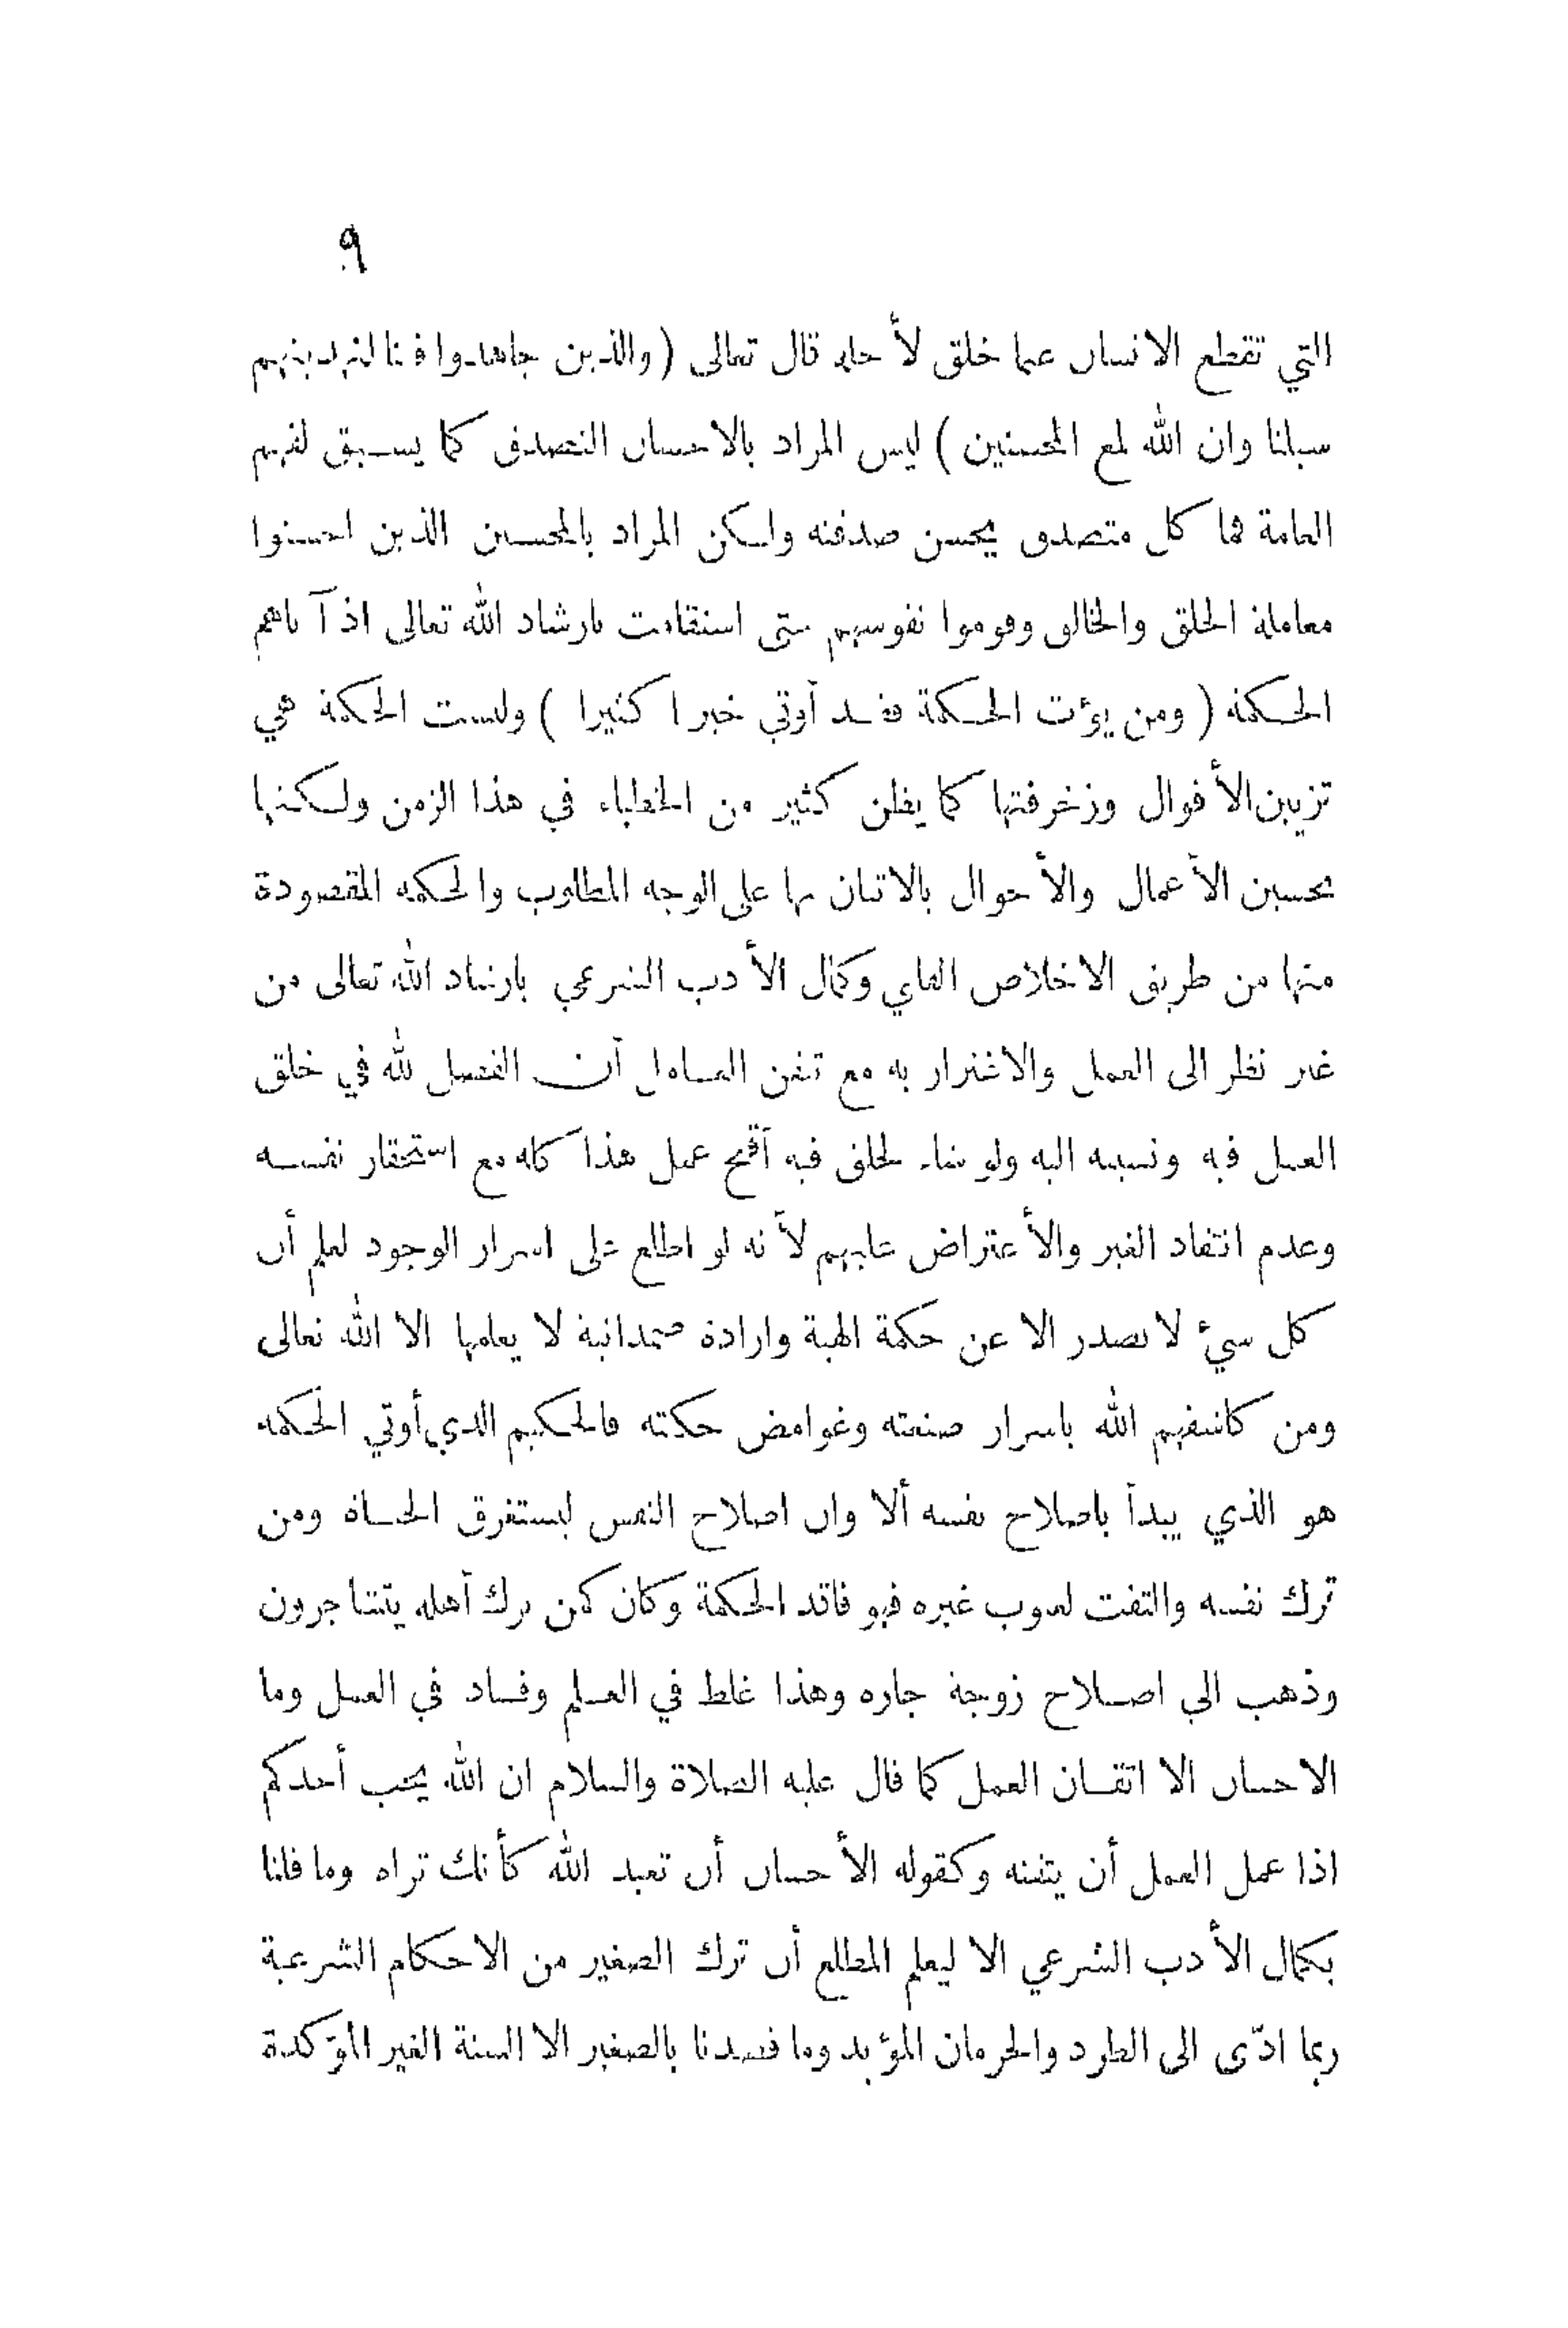 ٩
التي تقطع الانسان عما خلق لأجله قال تعالى ( والذين جاهدوا فينا لنهدينهم
سبلنا وان الله لمع المحسنين ) ليس المراد بالاحسان التصدق كما يسبق لفهم
العامة فما كل متصدق يحسن صدقته ولكن المراد بالمحسنين الذين احسنوا
معاملة الخلق والخالق وقوموا نفوسهم حتى استقامت بارشاد الله تعالى اذ آتاهم
الحكمة ( ومن يؤت الحكمة فقد أوتي خيرا كثيرا ) وليست الحكمة هي
تزيين الأقوال وزخرفتها كما يظن كثير من الخطباء في هذا الزمن ولكنها
تحسين الأعمال والأحوال بالاتيان بها على الوجه المطلوب والحكمة المقصودة
منها من طريق الاخلاص القلبي وكمال الأدب الشرعي بارشاد الله تعالى من
غير نظر الى العمل والاغترار به مع تيقن العامل أن الفضل لله في خلق
العمل فيه ونسبته اليه ولو شاء لخلق فيه أقبح عمل هذا كله مع استحقار نفسه
وعدم انتقاد الغير والأعتراض عليهم لأنه لو اطلع على اسرار الوجود لعلم أن
كل شيء لا يصدر الا عن حكمة الهية وارادة صمدانية لا يعلمها الا الله تعالى
ومن كاشفهم الله باسرار صنعته وغوامض حكمته فالحكيم الذي أوتي الحكمة
هو الذي يبدأ باصلاح نفسه ألا وان اصلاح النفس ليستغرق الحياة ومن
ترك نفسه والتفت لعيوب غيره فهو فاقد الحكمة وكان كمن ترك أهله يتشاجرون
وذهب الى اصلاح زوجة جاره وهذا غلط في العلم وفساد في العمل وما
الاحسان الا اتقان العمل كما قال عليه الصلاة والسلام ان الله يحب أحدكم
اذا عمل العمل أن يتقنه وكقوله الأحسان أن تعبد الله كأنك تراه وما قلنا
بكمال الأدب الشرعي الا ليعلم المطلع أن ترك الصغير من الاحكام الشرعية
ربما ادّى الى الطرد والحرمان المؤبد وما قصدنا بالصغير الا السنة الغير المؤكدة